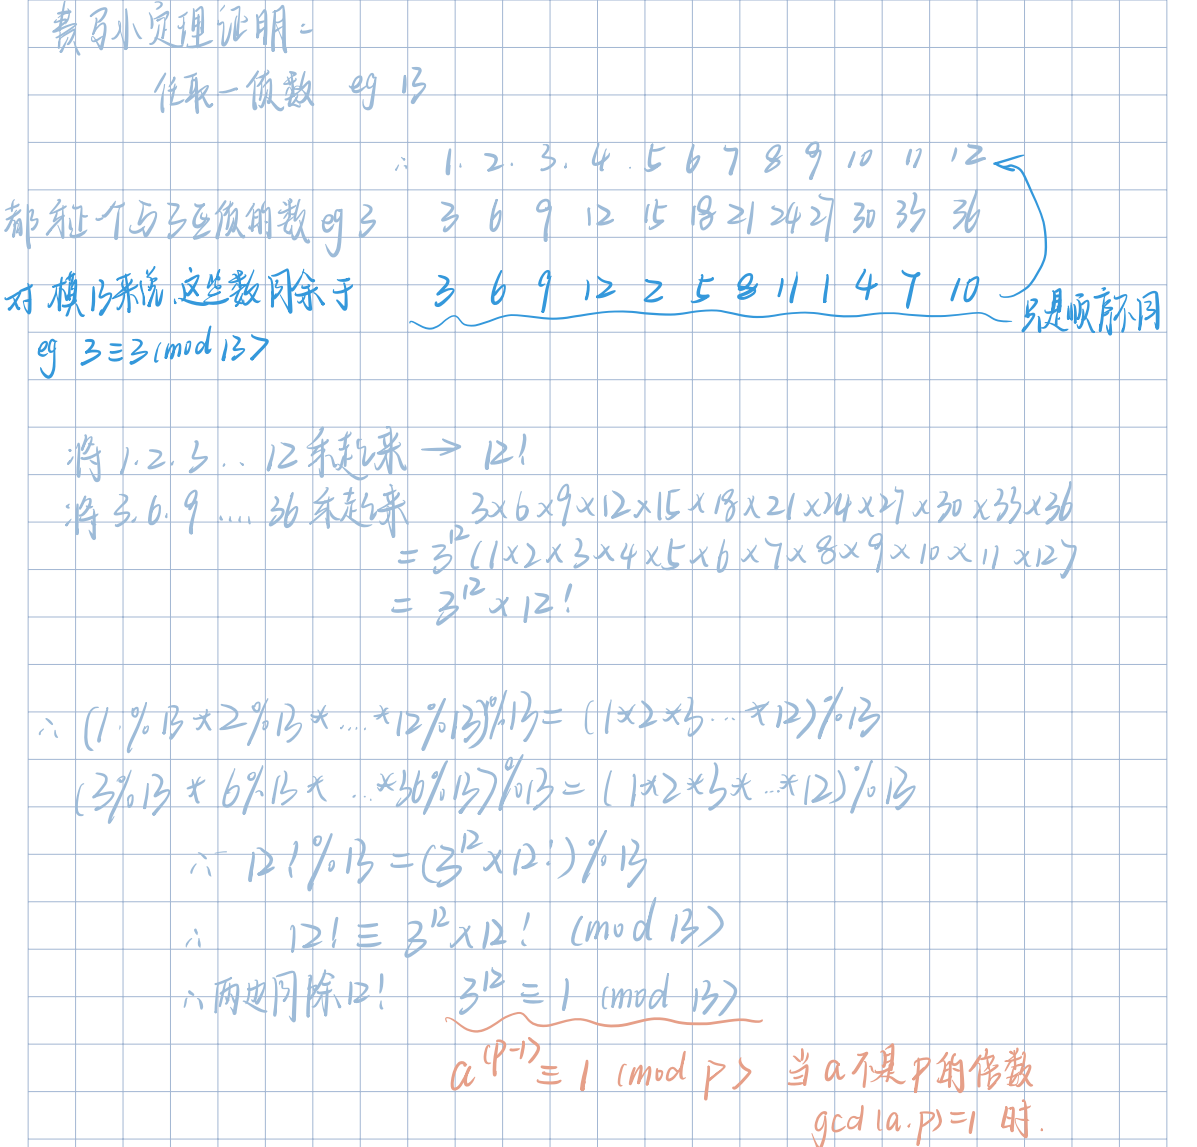 费马小定理证明:
任取一质数 eg 13
∴ 1. 2. 3. 4. 5 6 7 8 9 10 11 12
都乘上一个与13互质的数 eg 3 3 6 9 12 15 18 21 24 27 30 33 36
对模13来说,这些数同余于 3 6 9 12 2 5 8 11 1 4 7 10 只是顺序不同
eg 3≡3(mod 13)
将 1.2.3... 12乘起来 → 12!
将 3.6.9 .... 36乘起来 3×6×9×12×15×18×21×24×27×30×33×36
= 3^12(1×2×3×4×5×6×7×8×9×10×11×12)
= 3^12×12!
∴ (1%13*2%13*....*12%13)%13= (1*2*3...*12)%13
(3%13*6%13*...*36%13)%13= (1*2*3*...*12)%13
∵ 12!%13=(3^12×12!)%13
∴ 12!≡3^12×12! (mod 13)
∴两边同除12! 3^12≡1 (mod 13)
a^(p-1)≡1 (mod p) 当a不是p的倍数
gcd(a.p)=1 时.